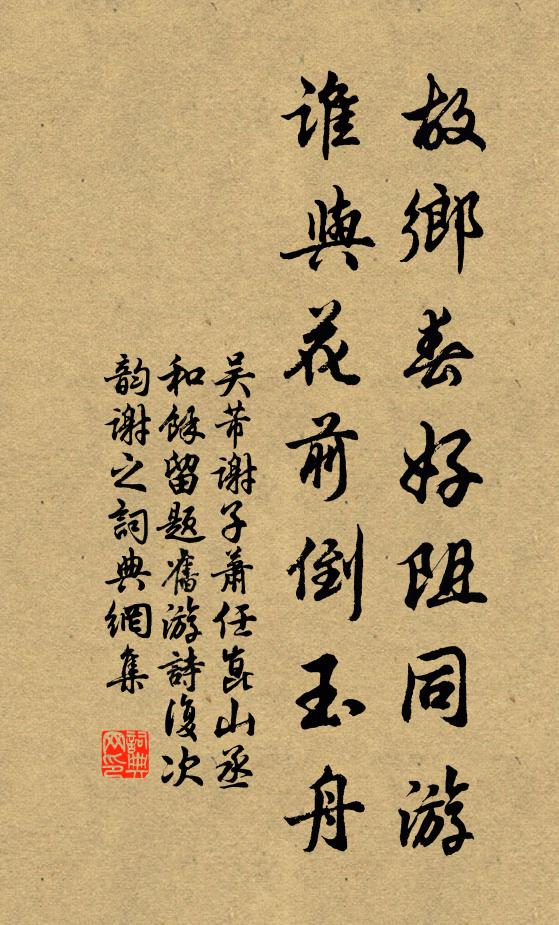 故鄉春好阻同游
誰與花前倒玉舟
吴芾謝子蕭任崑山丞
和餘留題舊游詩復次
韵謝之詞典網集
詞典
网印